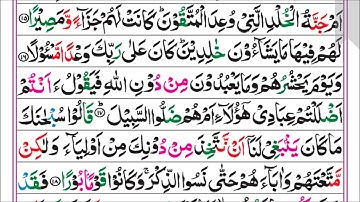 اَمۡ جَنَّةُ الۡخُلۡدِ الَّتِیۡ وُعِدَ الۡمُتَّقُوۡنَؕ كَانَتۡ لَهُمۡ جَزَآءً وَّمَصِیۡرًا ﴿۱۵﴾
لَهُمۡ فِیۡهَا مَا یَشَآءُوۡنَ خٰلِدِیۡنَؕ كَانَ عَلٰی رَبِّكَ وَعۡدًا مَّسۡـُٔوۡلًا ﴿۱۶﴾
وَیَوۡمَ یَحۡشُرُهُمۡ وَمَا یَعۡبُدُوۡنَ مِنۡ دُوۡنِ اللّٰهِ فَیَقُوۡلُ ءَاَنۡتُمۡ
اَضۡلَلۡتُمۡ عِبَادِیۡ هٰٓؤُلَآءِ اَمۡ هُمۡ ضَلُّوا السَّبِیۡلَؕ ﴿۱۷﴾ قَالُوۡا سُبۡحٰنَكَ
مَا كَانَ یَنۡۢبَغِیۡ لَنَاۤ اَنۡ نَّتَّخِذَ مِنۡ دُوۡنِكَ مِنۡ اَوۡلِیَآءَ وَلٰكِنۡ
مَّتَّعۡتَهُمۡ وَاٰبَآءَهُمۡ حَتّٰی نَسُوا الذِّكۡرَۚ وَكَانُوۡا قَوۡمًۢا بُوۡرًا ﴿۱۸﴾ فَقَدۡ